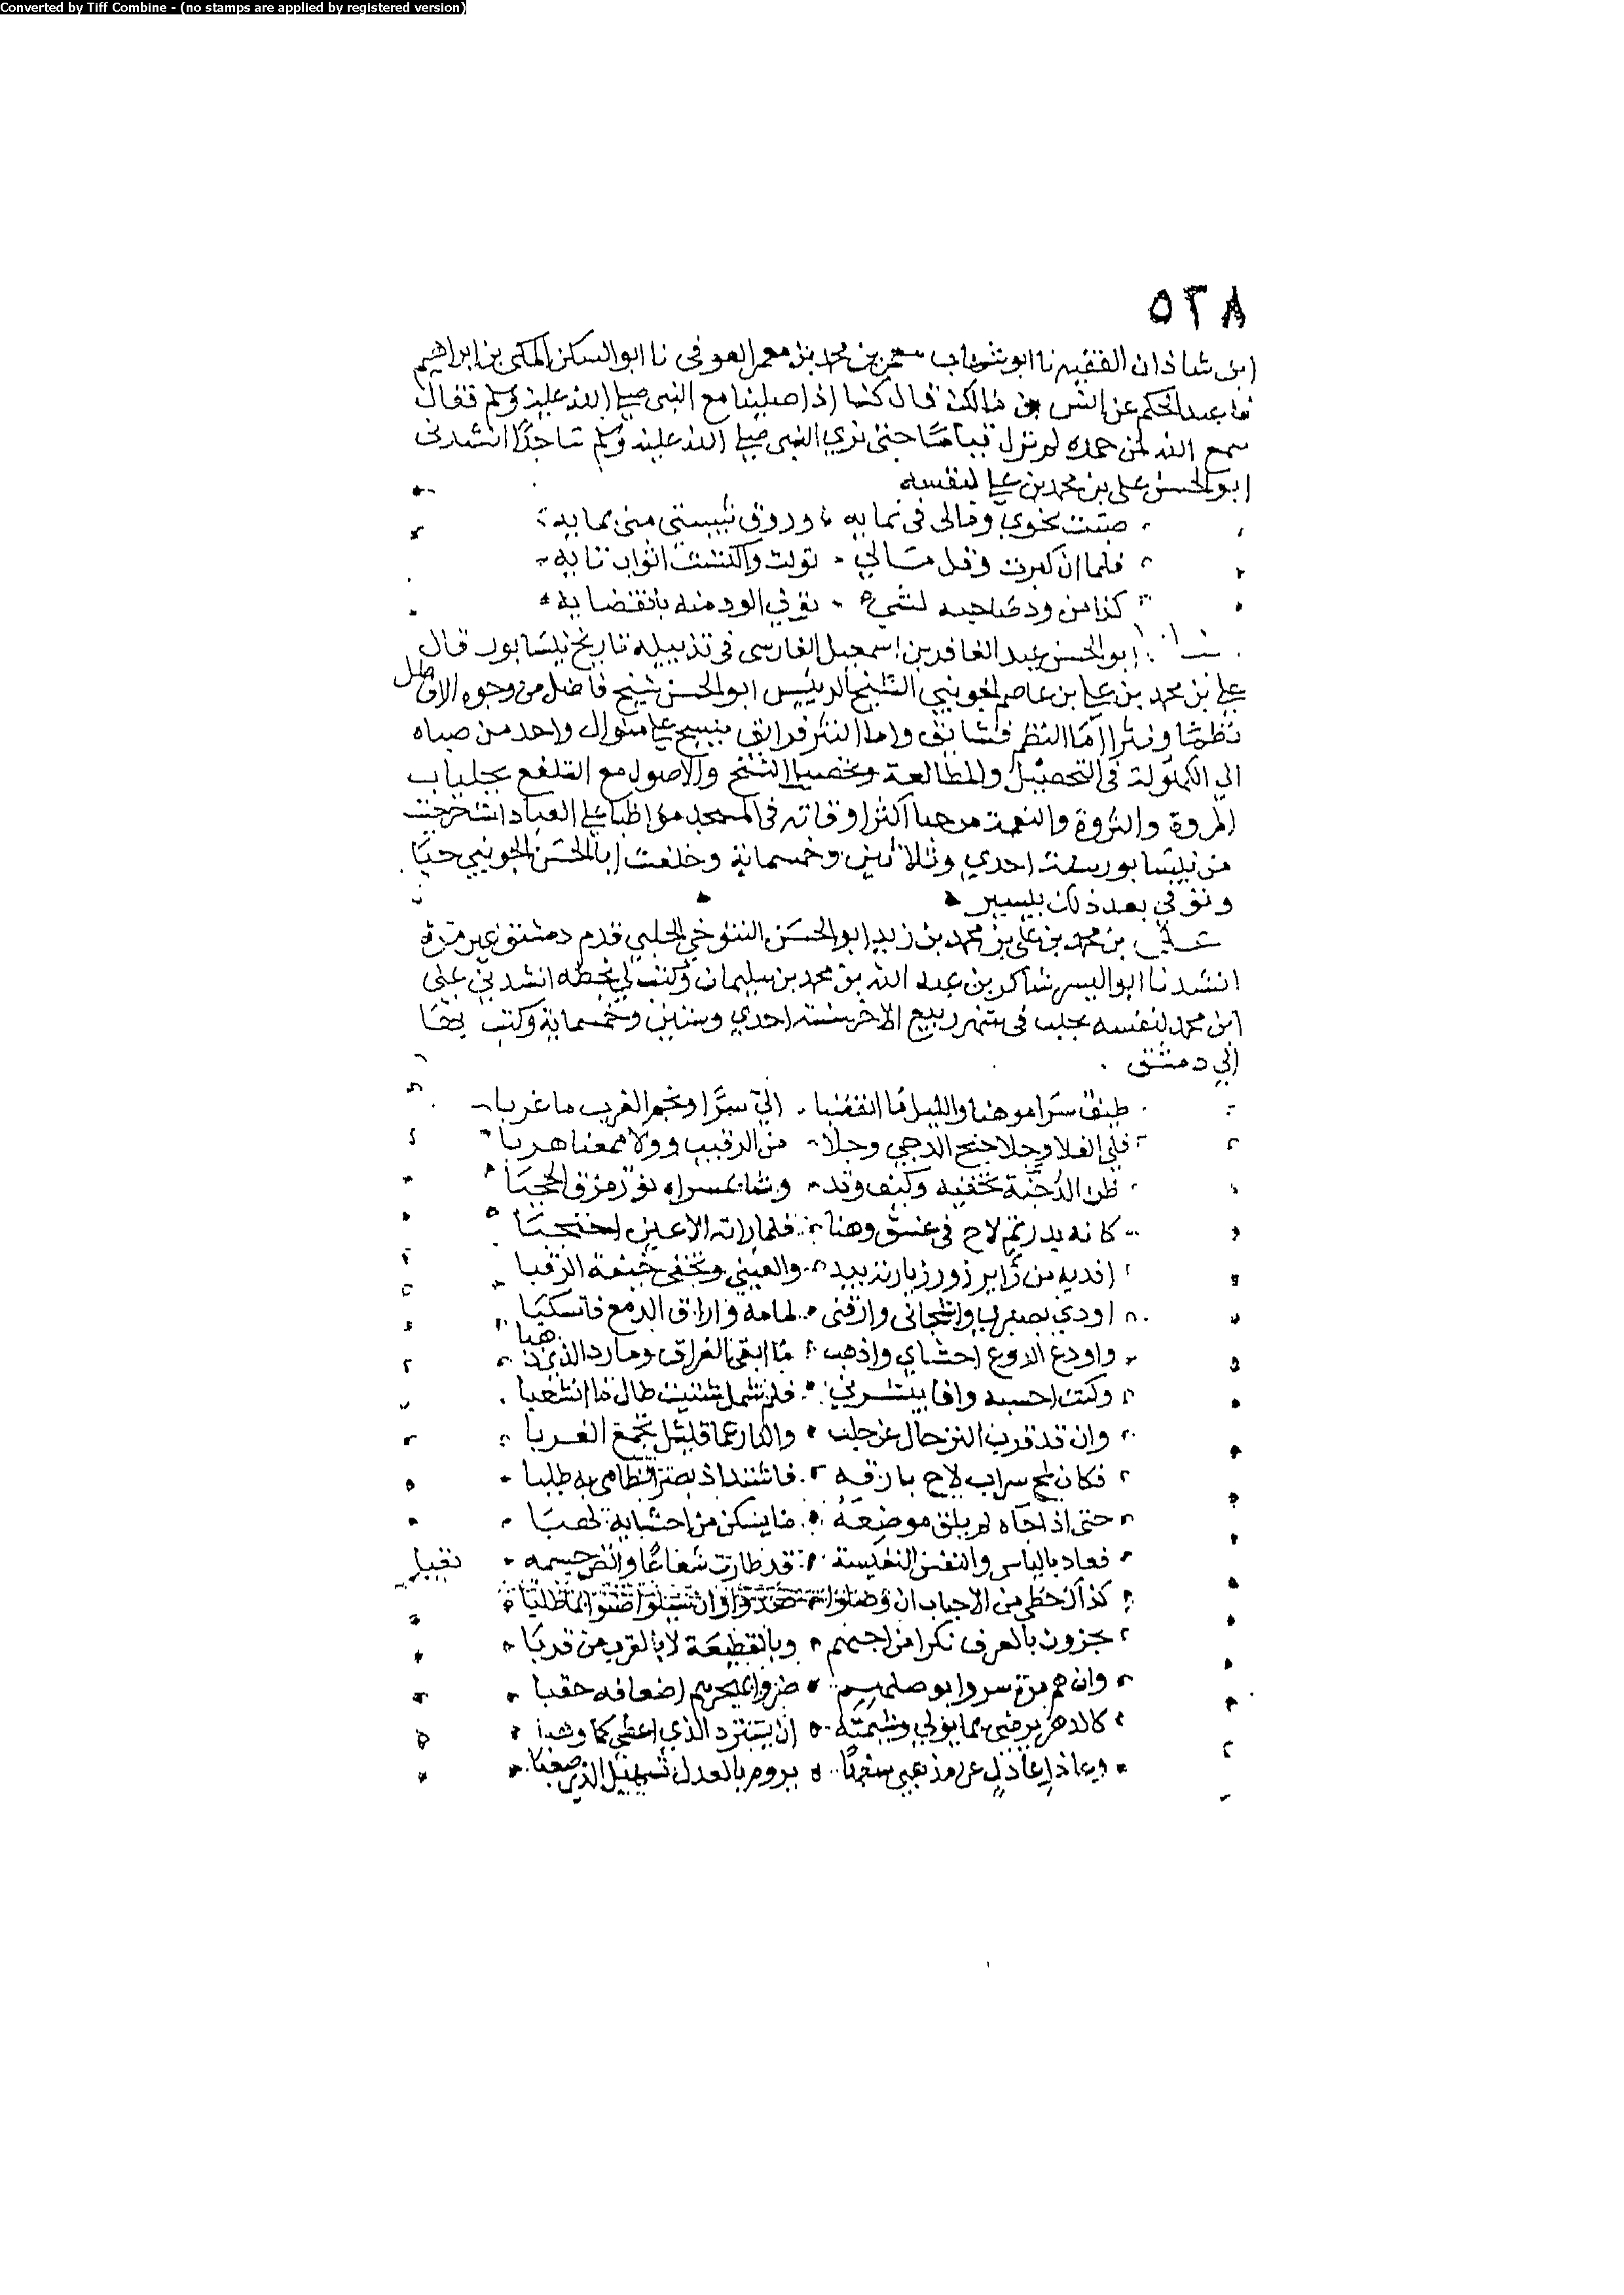 Converted by Tiff Combine - (no stamps are applied by registered version)
٥٢٨
ابن شاذان الفقيه نا ابو شهاب معمر بن محمد بن معمر العوفى نا ابو السكن المكى بن ابراهيم
نا عبد الحكم عن انس بن مالك قال كنا اذا صلينا مع النبى صلى الله عليه وسلم فقال
سمع الله لمن حمده لم نزل قياما حتى نرى النبى صلى الله عليه وسلم ساجدًا انشدنى
ابو الحسن على بن محمد بن على لنفسه
صبت نحوى ومالى فى نمايه وروق شبيبتى منى بمايه
فلما ان كبرت وقل مالي تولت واكتست اثواب نايه
كذا من ود صاحبه لشىء توفي الود منه بانقضايه
ابو الحسن عبد الغافر بن اسمعيل الفارسى فى تذييله تاريخ نيسابور قال
على بن محمد بن على بن عاصم الجويني الشيخ الرييس ابو الحسن شيخ فاضل من وجوه الافاضل
نظمًا ونثرا اما النظم فشايق واما النثر فرايق ينسج على منوال واحد من صباه
الى الكهولة فى التحصيل والمطالعة والاصول مع التلفع بجلباب
المروة والثروة والنعمة اكثر اوقاته فى المسجد مواظبا على العبادات خرجت
من نيسابور سنة احدي وثلاثين وخمسماية وخلفت ابا الحسن الجويني حيًا
وتوفي بعد ذلك بيسير
علي بن محمد بن على بن محمد بن زيد ابو الحسن التنوخي الحلبي قدم دمشق غير مرة
انشدنا ابو اليسر شاكر بن عبد الله بن محمد بن سليمان وكتب لي بخطه انشدني على
ابن محمد لنفسه بحلب فى شهر ربيع الاخر سنة احدي وستين وخمسماية وكتب بها
الي دمشق
طيف سرا موهنا والليل ما انقضبا الي سرًا ونجم الغرب ما غربا
فلى الفلا وجلا جنح الدجي وجلا من الرقيب وولا ممعنا هربا
ظن الدُجنّة تخفيه وكيف وقد مسراه نور مزق الحجبا
كانه بدر تم لاح فى غسق وهنا فلما راته الاعين احتجبا
افديه من زاير زور والفيني وتخفى خيفة الرقبا
اودي بصبرى واشجانى وارقنى لمامه واراق الدمع فانسكبا
واودع الروع احشاي واذهب ما ابقى الفراق وما رد الذي ذهبا
وكنت احسبه وافا يبشرني فلم شمل شتيت طال ما انشعبا
وان قد قرب الترحال عن حلب والدار عما قليل تجمع الغربا
فكان لمح سراب لاح بارقه فاشتد اذ بصر الظامى به طلبا
حتى اذا جاه لم يلق موضعه ما يسكن من احشايه لهبا
فعاد بالياس والنفس النفيسة قد طارت شعاعًا وانض جسمه
كذاك حظى من الاحباب ان وصلوا صدوا وان
يجزون بالعرف نكرا من احبهم وبالقطيعة لا بالقرب من قربا
وان هم مرة سروا بوصلهم ضروا بهجرهم اضعافه حقبا
كالدهر يرضى بما يولي وشيمته ان يسترد الذي اعطى كما وهبا
عن مذهبي سفهًا يروم بالعدل تسهيل الذى صعبا